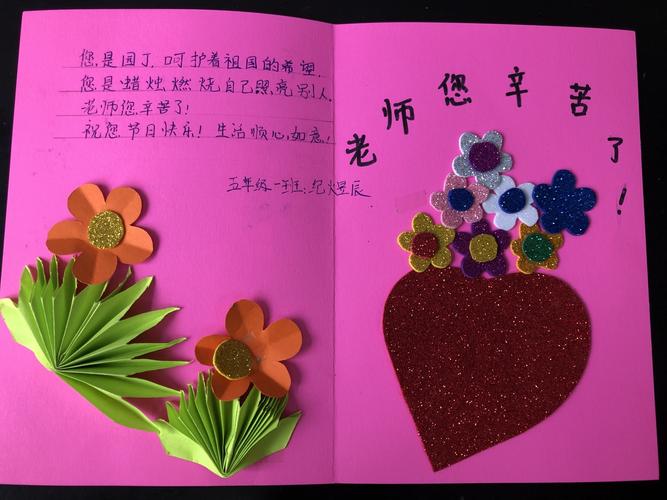 您是园丁,呵护着祖国的希望.
您是蜡烛,燃烧自己照亮别人.
老师您辛苦了!
祝您节日快乐! 生活顺心,如意!
五年级一班:纪煜辰
老师您辛苦了!